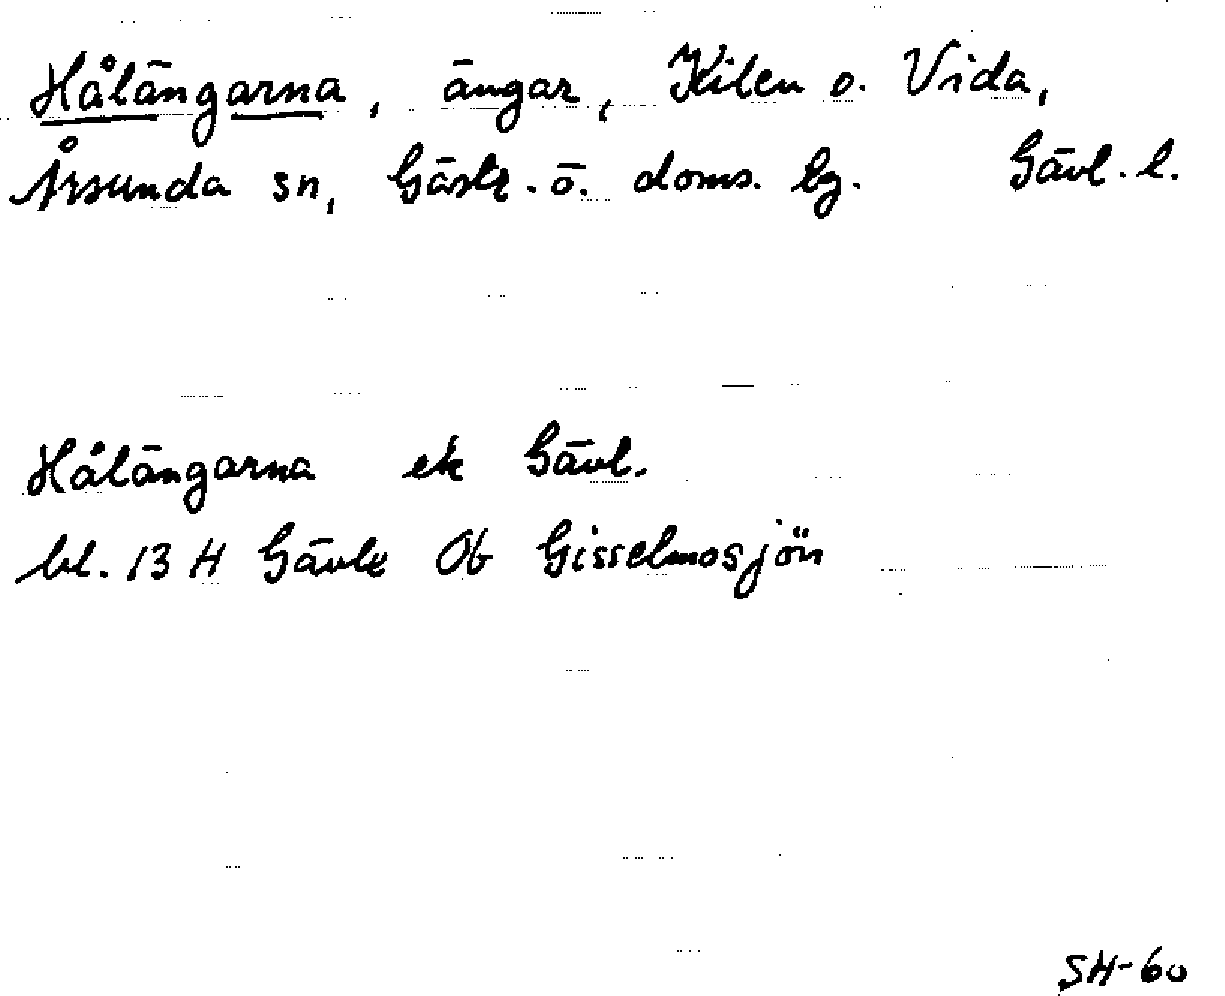 Hålängarna, ängar, Kilen o. Vida,
Årsunda sn, Gästr. ö. doms. bg. Gävl. l.
Hålängarna ek Gävl.
bl. 13 H Gävle Ob Gisselmosjön
SH-60